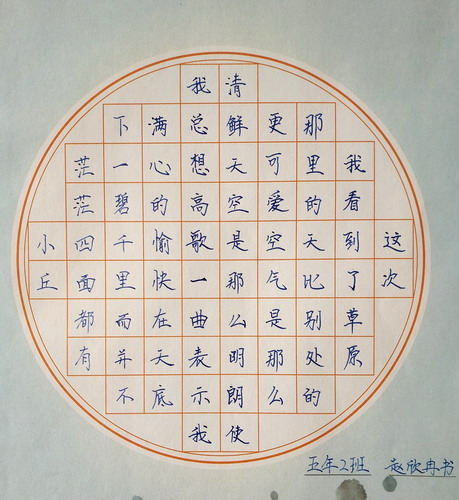 这次
我看到了草原
那里的天比别处的
更可爱空气是那么
清鲜天空是那么明朗使
我总想高歌一曲表示我
满心的愉快在天底
下一碧千里而并不
茫茫四面都有
小丘
五年2班 赵欣冉书